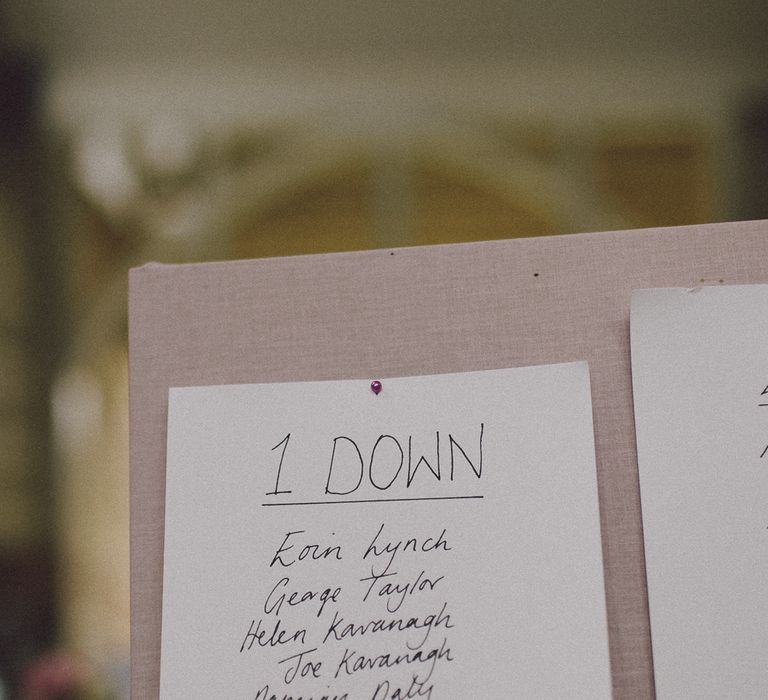 1 DOWN
Eoin Lynch
George Taylor
Helen Kavanagh
Joe Kavanagh
Damian Daly